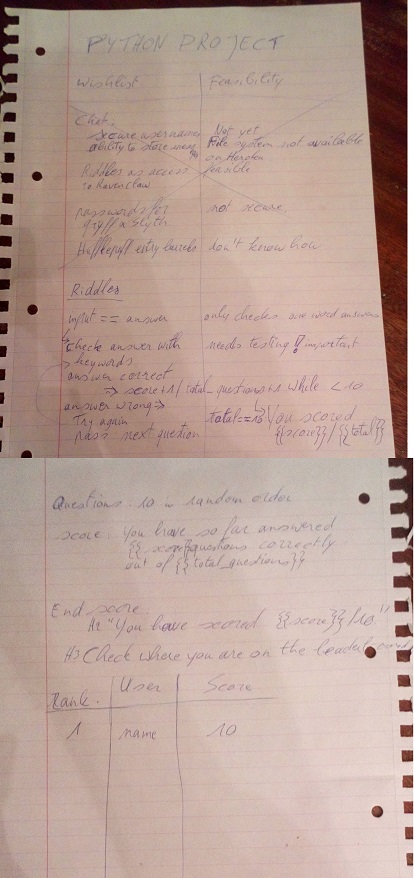 PYTHON PROJECT
Wishlist Feasibility
Chat:
secure usernames Not yet
ability to store File system not available
on Heroku
Riddles as access feasible
to ravenclaw
passwords for not secure.
gryff & slyth
Hufflepuff entry barrels don't know how
Riddles
input == answer only checks one word answers
check answer with needs testing! important
keywords
answer correct
⇒ score+1/total_questions+1 while < 10
answer wrong ⇒ total==10 You scored
Try again {{score}}/{{total}}
pass next question
Questions: 10 in random order
score: You have so far answered
{{score}} questions correctly
out of {{total_questions}}
End score:
"You have scored {{score}}/10"
Check where you are on the leaderboard
Rank. User Score
1 name 10